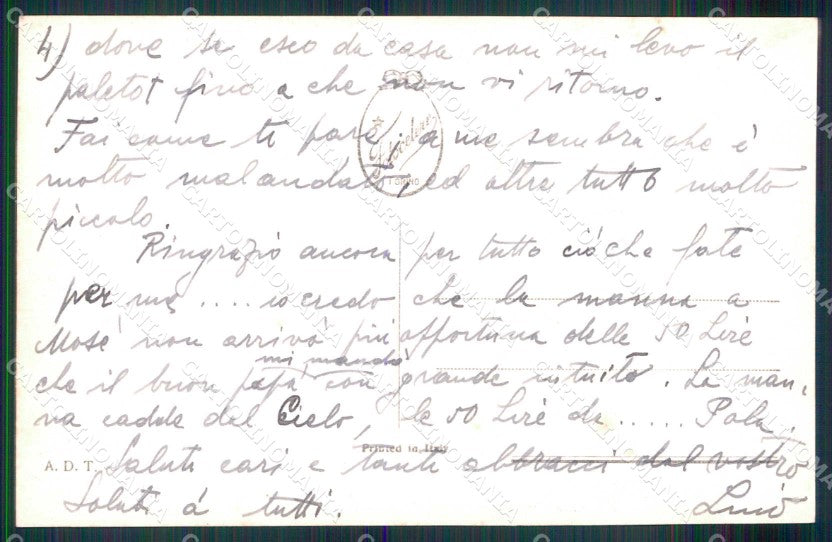 4) dove se esco da casa non mi levo il
paletot fino a che non vi ritorno.
Fai come ti pare, a me sembra che è
molto malandato, ed oltre tutto molto
piccolo.
Ringrazio ancora per tutto ciò che fate
per me .... io credo che la manna a
Mosé non arrivò più opportuna delle 50 Lire
mi mandò
che il buon papà con grande intuito. La man-
na cadde dal Cielo, le 50 Lire da ...... Pola.
Printed in Italy
A. D. T. Saluti cari e tanti abbracci dal vostro
Saluti á tutti. Livio
TORINO
CARTOLINOMANIA